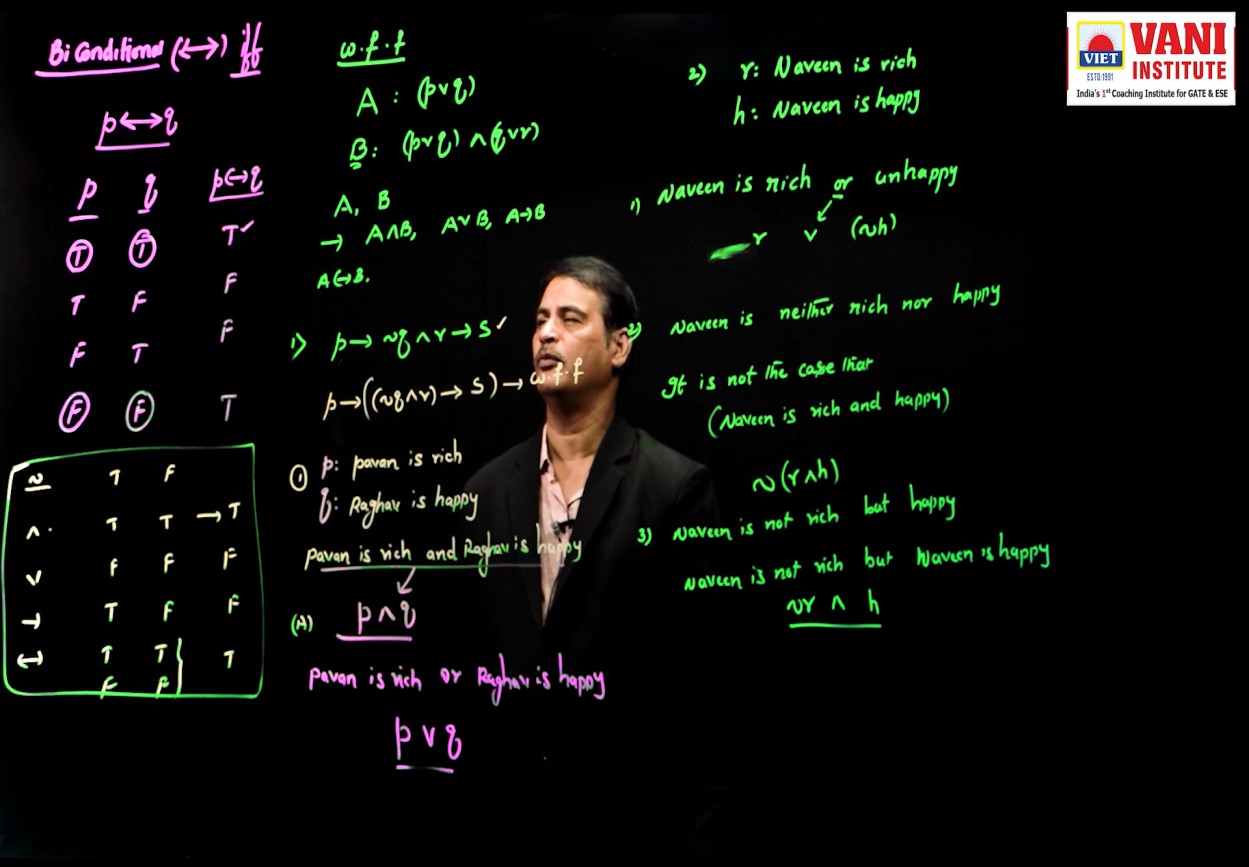 Bi Conditional (↔) iff
p↔q
p q p↔q
T T T✓
T F F
F T F
F F T
~ T F
∧ T T → T
∨ F F F
→ T F F
↔ T T } T
F F
w.f.f
A : (p∨q)
B : (p∨q) ∧ (q∨r)
A, B
→ A∧B, A∨B, A→B
A↔B.
1) p→ ~q ∧ r → S ✓
p→((~q∧r)→ S) → w.f.f
① p: pavan is rich
q: Raghav is happy
Pavan is rich and Raghav is happy
(A) p∧q
Pavan is rich or Raghav is happy
p ∨ q
2) r: Naveen is rich
h: Naveen is happy
1) Naveen is rich or unhappy
r ∨ (~h)
2) Naveen is neither rich nor happy
It is not the case that
(Naveen is rich and happy)
~(r∧h)
3) Naveen is not rich but happy
Naveen is not rich but Naveen is happy
~r ∧ h
VIET
ESTD:1991
VANI
INSTITUTE
India's 1st Coaching Institute for GATE & ESE